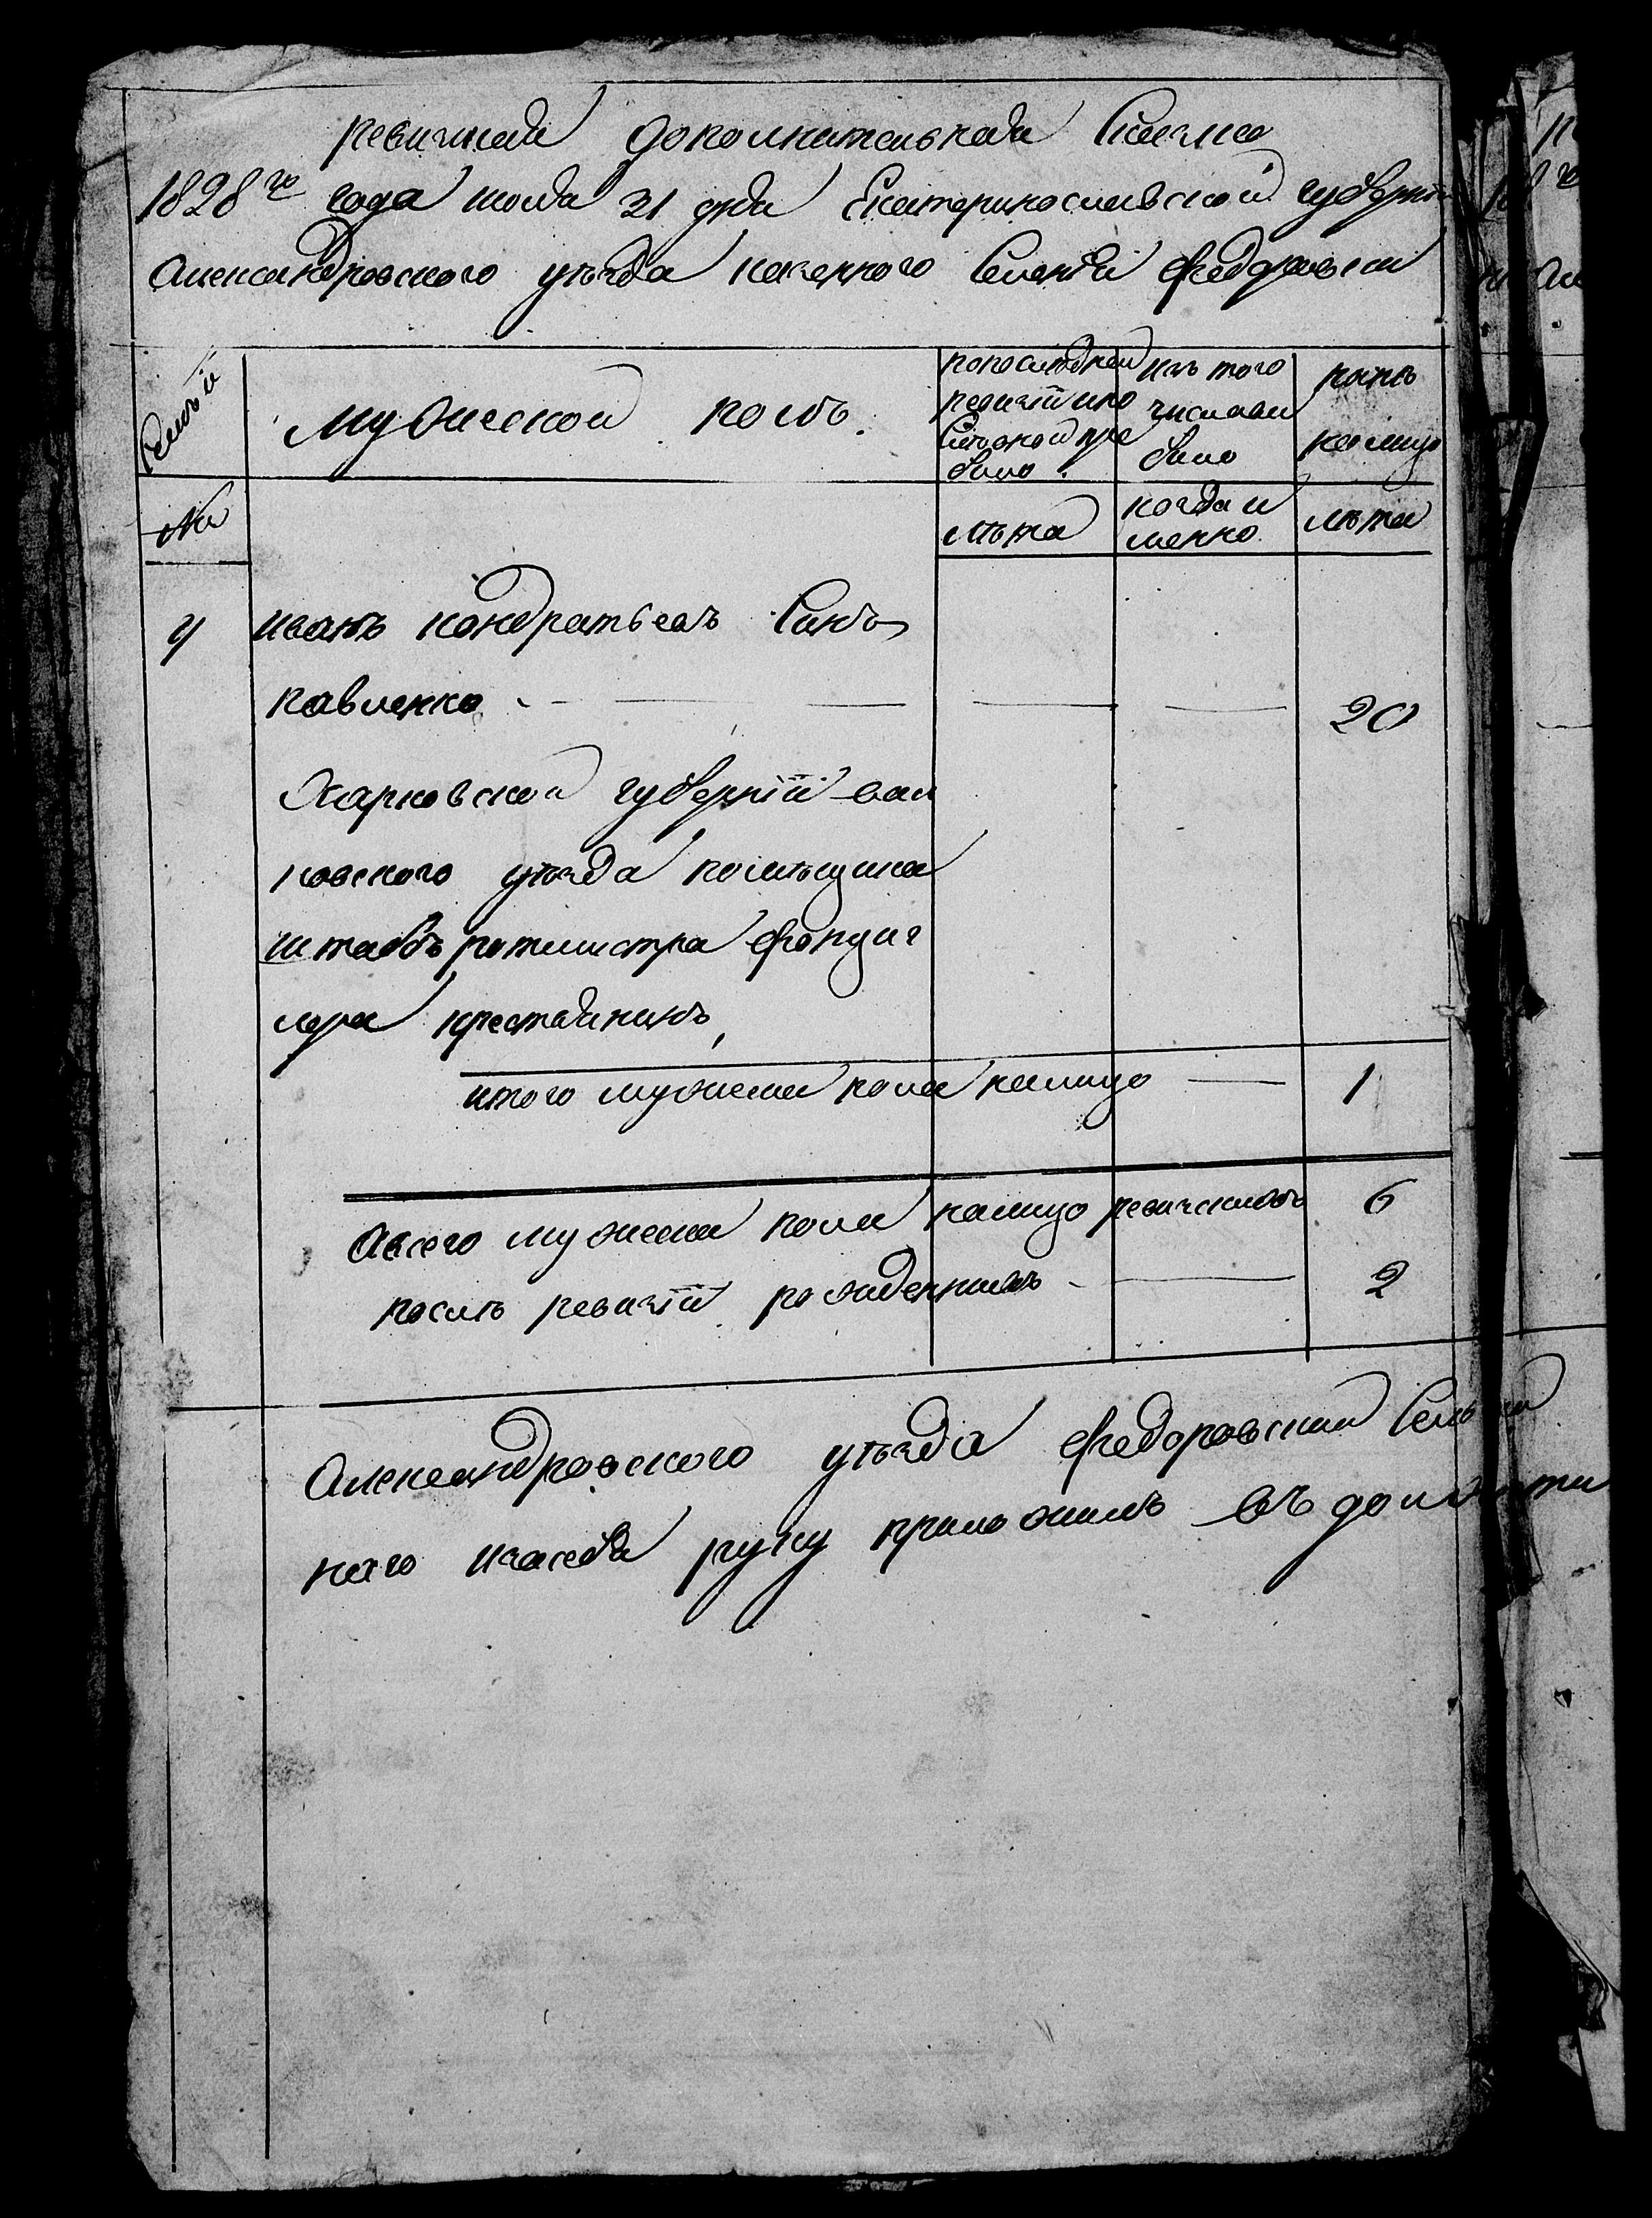 ревижская дополнительная Скаска
1828го года июля 31 дня Екатеринославской губернии
Александровского уезда казенного Селения Федоровки
Семьи
Мужеской полъ.
попоследней ревизии ипо Сле оной при было
изъ того числа вы было
ныне на лицо
№
лета
когда и менно
лета
4 иванъ кондратьевъ Синъ
павленко 20
Харковской губернии вал
ковского уезда помещика
штабъ ротмистра
крестянинъ
итого мужеска пола налицо 1
Авсего мужеска пола налицо ревижскихъ 6
после ревизии рожденныхъ 2
Александровского уезда Федоровский
руку приложилъ въ должности